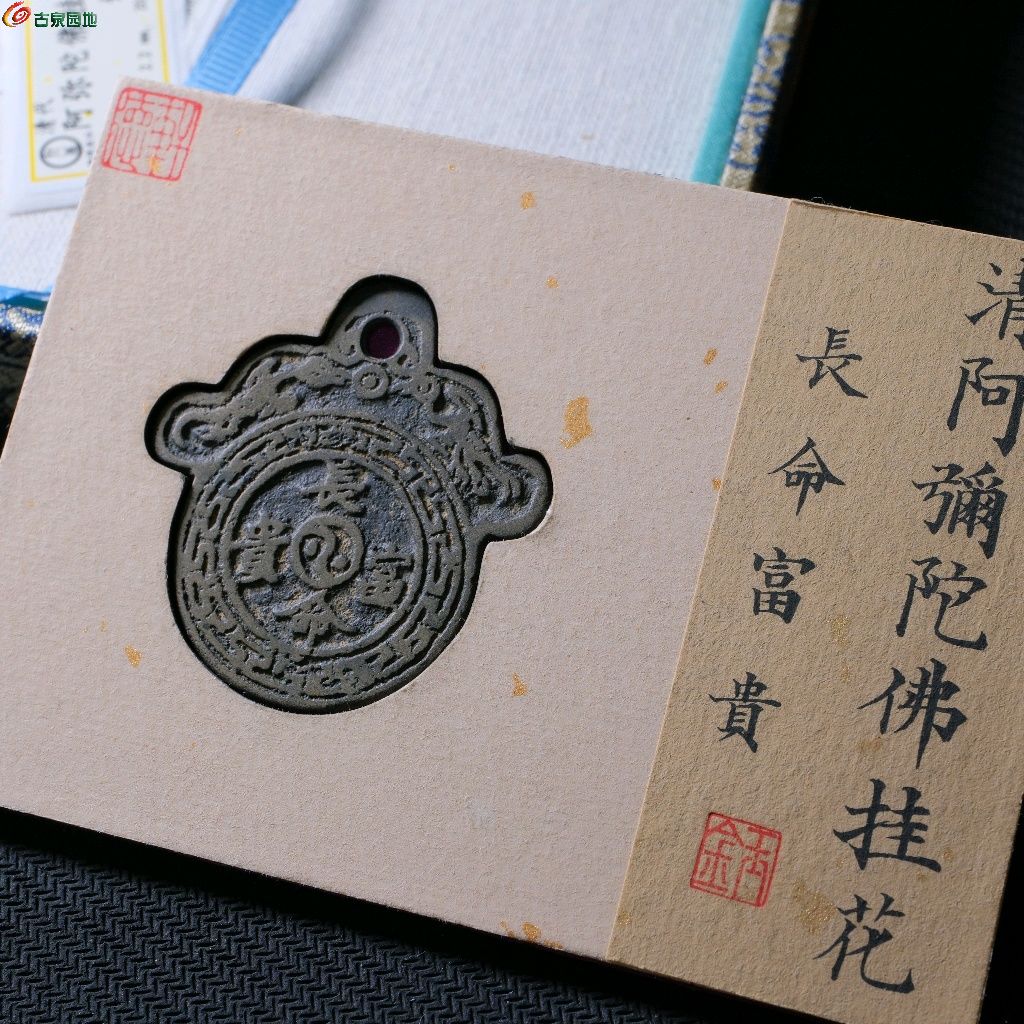 古泉园地
阿弥陀佛
清阿彌陀佛挂花
長命富貴
長命富貴